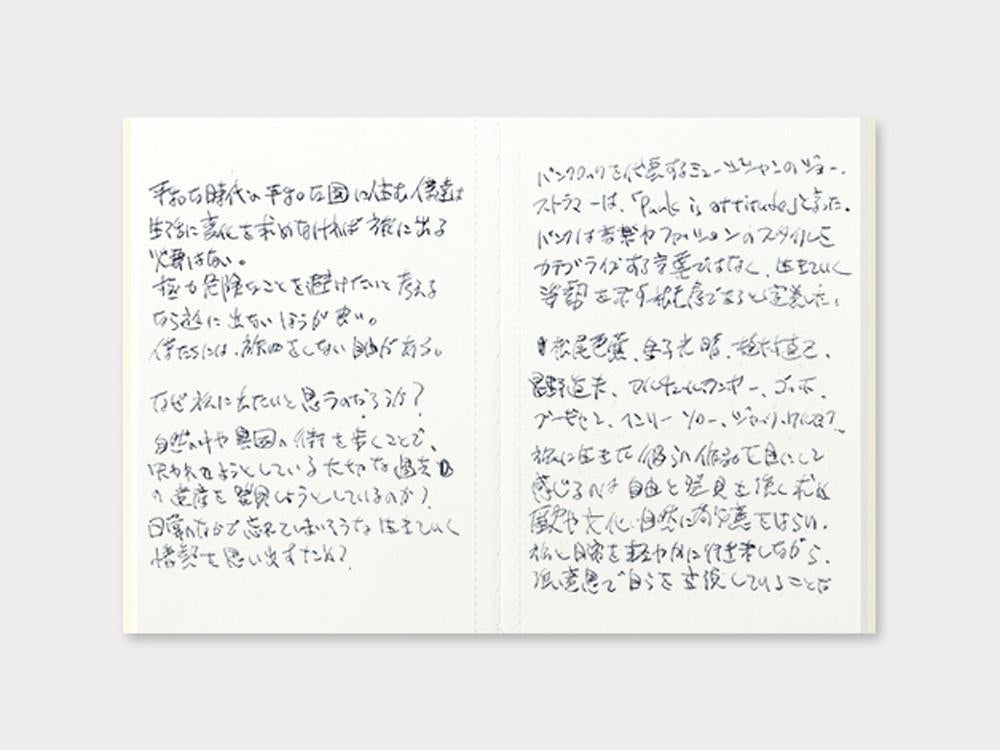 平和な時代の平和な国に住む僕達は
生活に変化を求めなければ旅に出る
必要はない。
極力危険なことを避けたいと考える
なら旅に出ないほうが良い。
僕たちには、旅をしない自由がある。
なぜ旅に出たいと思うのだろうか？
自然の中や異国の街を歩くことで、
失われようとしている大切な過去
の遺産を発見しようとしているのか？
日常のなかで忘れてしまいそうな生きていく
を思い出すため？
パンクロックを代表するミュージシャンのジョー・
ストラマーは、「Punk is attitude」と言った。
パンクは音楽やファッションのスタイルを
カテゴライズする言葉ではなく、生きていく
姿勢を示す
松尾芭蕉、金子光晴、植村直己、
星野道夫、ゴッホ、
ヘンリー・ソロー、ジャック
旅に生きた彼らの作品を目にして
感じるのは自由と発見を強く求め
歴史や文化、自然に
旅と日常を軽やかに行き来しながら、
強い意思で自らを
していることだ